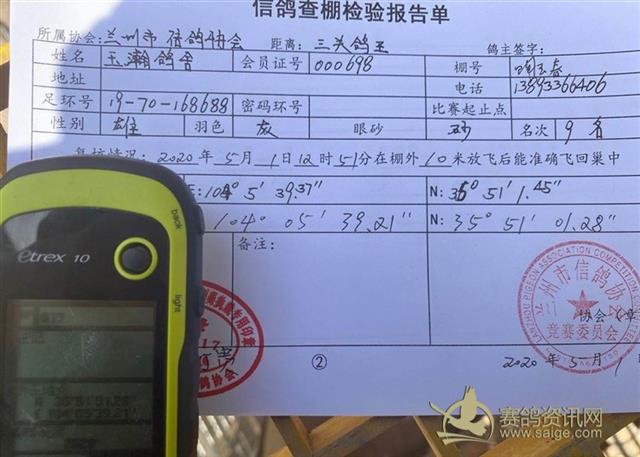 信鸽查棚检验报告单
所属协会:兰州市信鸽协会 距离:三关鸽王 鸽主签字:
姓名 玉瀚鸽舍 会员证号 000698 棚号
地址 电话 13893366406
足环号 19-70-168688 密码环号 比赛起止点
性别 雄 羽色 灰 眼砂 砂 名次 9名
情况:2020年5月1日12时51分在棚外10米放飞后能准确飞回巢中
E:104° 5′ 39.37″ N:35° 51′ 1.45″
104° 05′ 39.21″ N:35° 51′ 01.28″
备注:
兰州市信鸽协会
LANZHOU PIGEON ASSOCIATION COMPETITION
竞赛委员会
协会(章
专用印章
信鸽协会
②
2020年5月1
etrex 10
back
light
赛鸽资讯网
www.saige.com